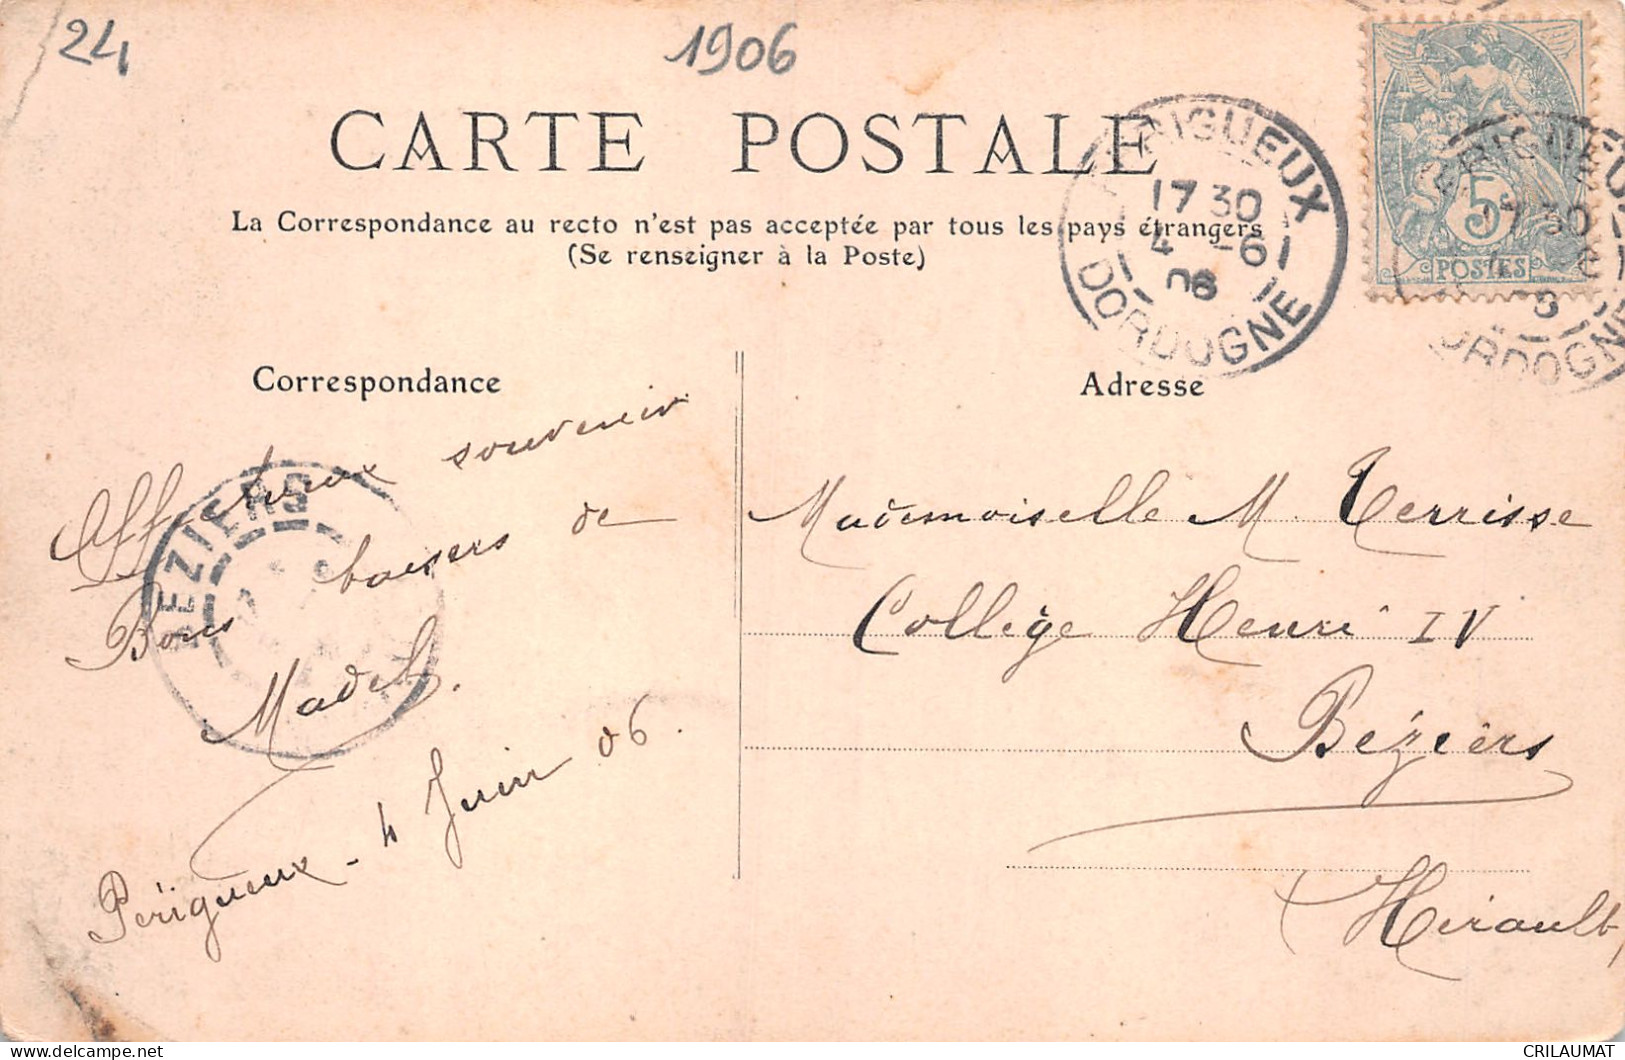 24
1906
CARTE POSTALE
La Correspondance au recto n'est pas acceptée par tous les pays étrangers
(Se renseigner à la Poste)
PERIGUEUX
17 30
4 -6
06
DORDOGNE
5
POSTES
Correspondance
Affectueux souvenir
Bons baisers de
Périgueux - 4 Juin 06.
BEZIERS
Adresse
Mademoiselle M. Terrisse
Collège Henri IV
Béziers
Hérault
CRILAUMAT